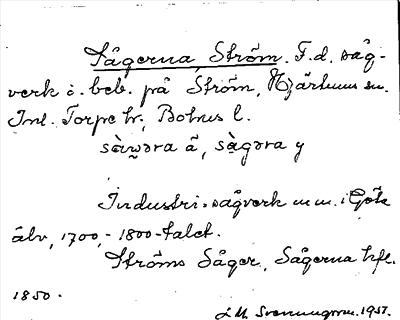 Sågerna Ström. F.d. såg-
verk o. beb. på Ström, Hjärtums sn.
Inl. Torpe hd, Bohus l.
sàwəra ã, sàgəra y
Industri: sågverk m.m. i Göta
älv, 1700,- 1800-talet.
Ströms Sågar, Sågerna
1850.
1951.